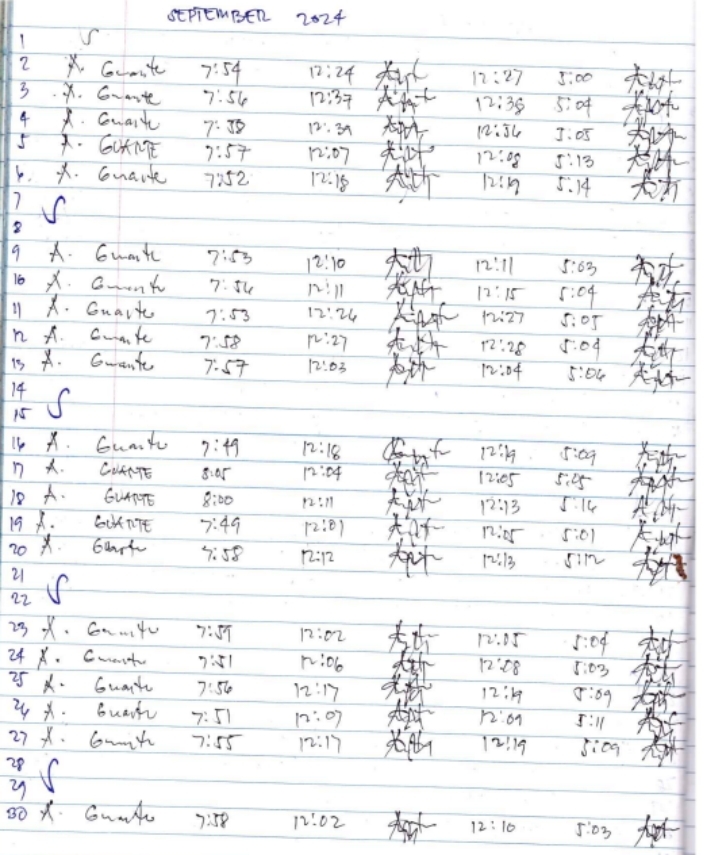 SEPTEMBER 2024
1
2 A. Guante 7:54 12:24 12:27 5:00
3 A. Guante 7:56 12:37 12:38 5:04
4 A. Guante 5:05
5 A. GUANTE 7:57 12:07 12:08 5:13
6. A. Guante 7:52 12:18 12:19 5:14
7
8
9 A. Guante 7:53 12:10 12:11 5:03
10 A. Guante 7:56 12:11 12:15 5:04
11 A. Guante 7:53 12:26 12:27 5:05
12 A. Guante 7:58 12:27 12:28 5:04
13 A. Guante 7:57 12:03 12:04 5:06
14
15
16 A. Guante 7:49 12:18 12:19 5:09
17 A. GUANTE 8:05 12:04 12:05
18 A. GUANTE 8:00 12:11 12:13 5:16
19 A. GUANTE 7:49 12:01 12:05 5:01
20 A. Guante 7:58 12:12 12:13 5:12
21
22
23 A. Guante 7:59 12:02 12:05 5:04
24 A. Guante 7:51 12:06 12:08 5:03
25 A. Guante 7:56 12:17 12:19 5:09
26 A. Guante 7:51 12:07 12:09 5:11
27 A. Guante 7:55 12:17 12:19 5:09
28
29
30 A. Guante 7:58 12:02 12:10 5:03